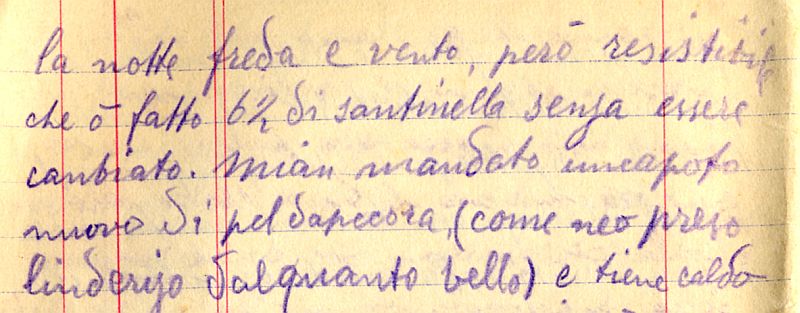 la notte freda e vento, però resistibile
che ò fatto 6h di santinella senza essere
canbiato. Mian mandato uncapoto
nuovo di pel dapecora, (come neo preso
linderizo dalquanto bello) e tiene caldo